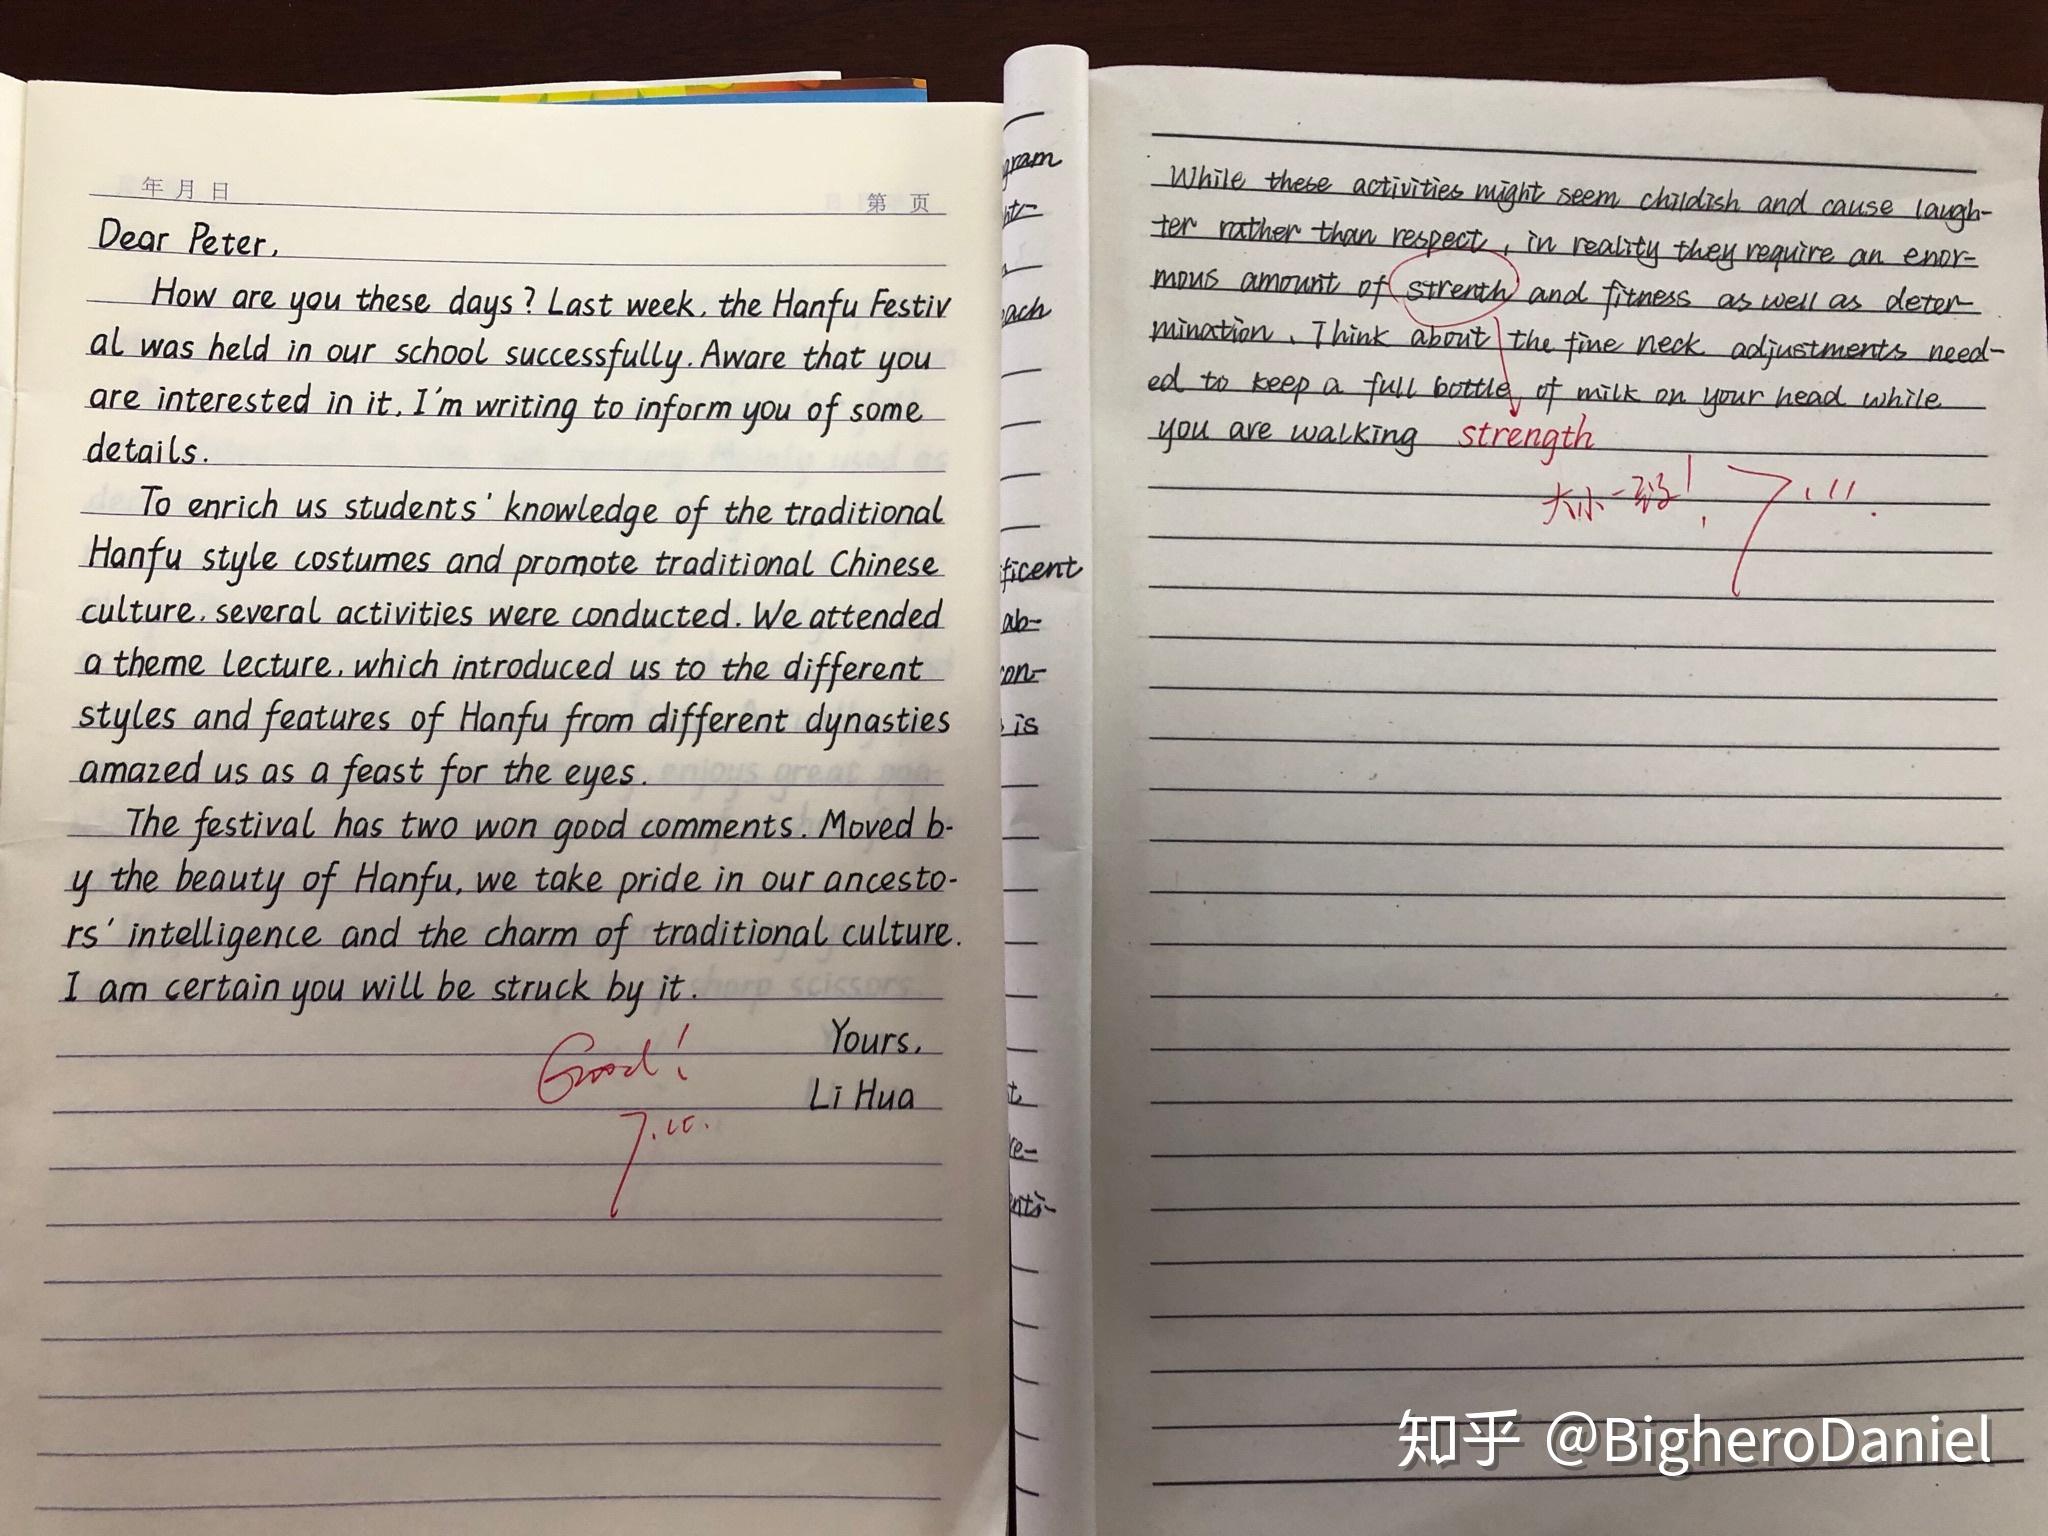 年 月 日
第 页
Dear Peter,
How are you these days? Last week, the Hanfu Festiv
al was held in our school successfully. Aware that you
are interested in it, I'm writing to inform you of some
details.
To enrich us students' knowledge of the traditional
Hanfu style costumes and promote traditional Chinese
culture, several activities were conducted. We attended
a theme lecture, which introduced us to the different
styles and features of Hanfu from different dynasties
amazed us as a feast for the eyes.
The festival has two won good comments. Moved b-
y the beauty of Hanfu, we take pride in our ancesto-
rs' intelligence and the charm of traditional culture.
I am certain you will be struck by it.
Yours,
Li Hua
Good!
gram
ht-
each
ficent
ab-
con-
is
t
re-
enti-
While these activities might seem childish and cause laugh-
ter rather than respect, in reality they require an enor-
mous amount of strenth and fitness as well as deter-
mination. Think about the fine neck adjustments need-
ed to keep a full bottle of milk on your head while
you are walking strength
大小一致!
7.11.
知乎 @BigheroDaniel